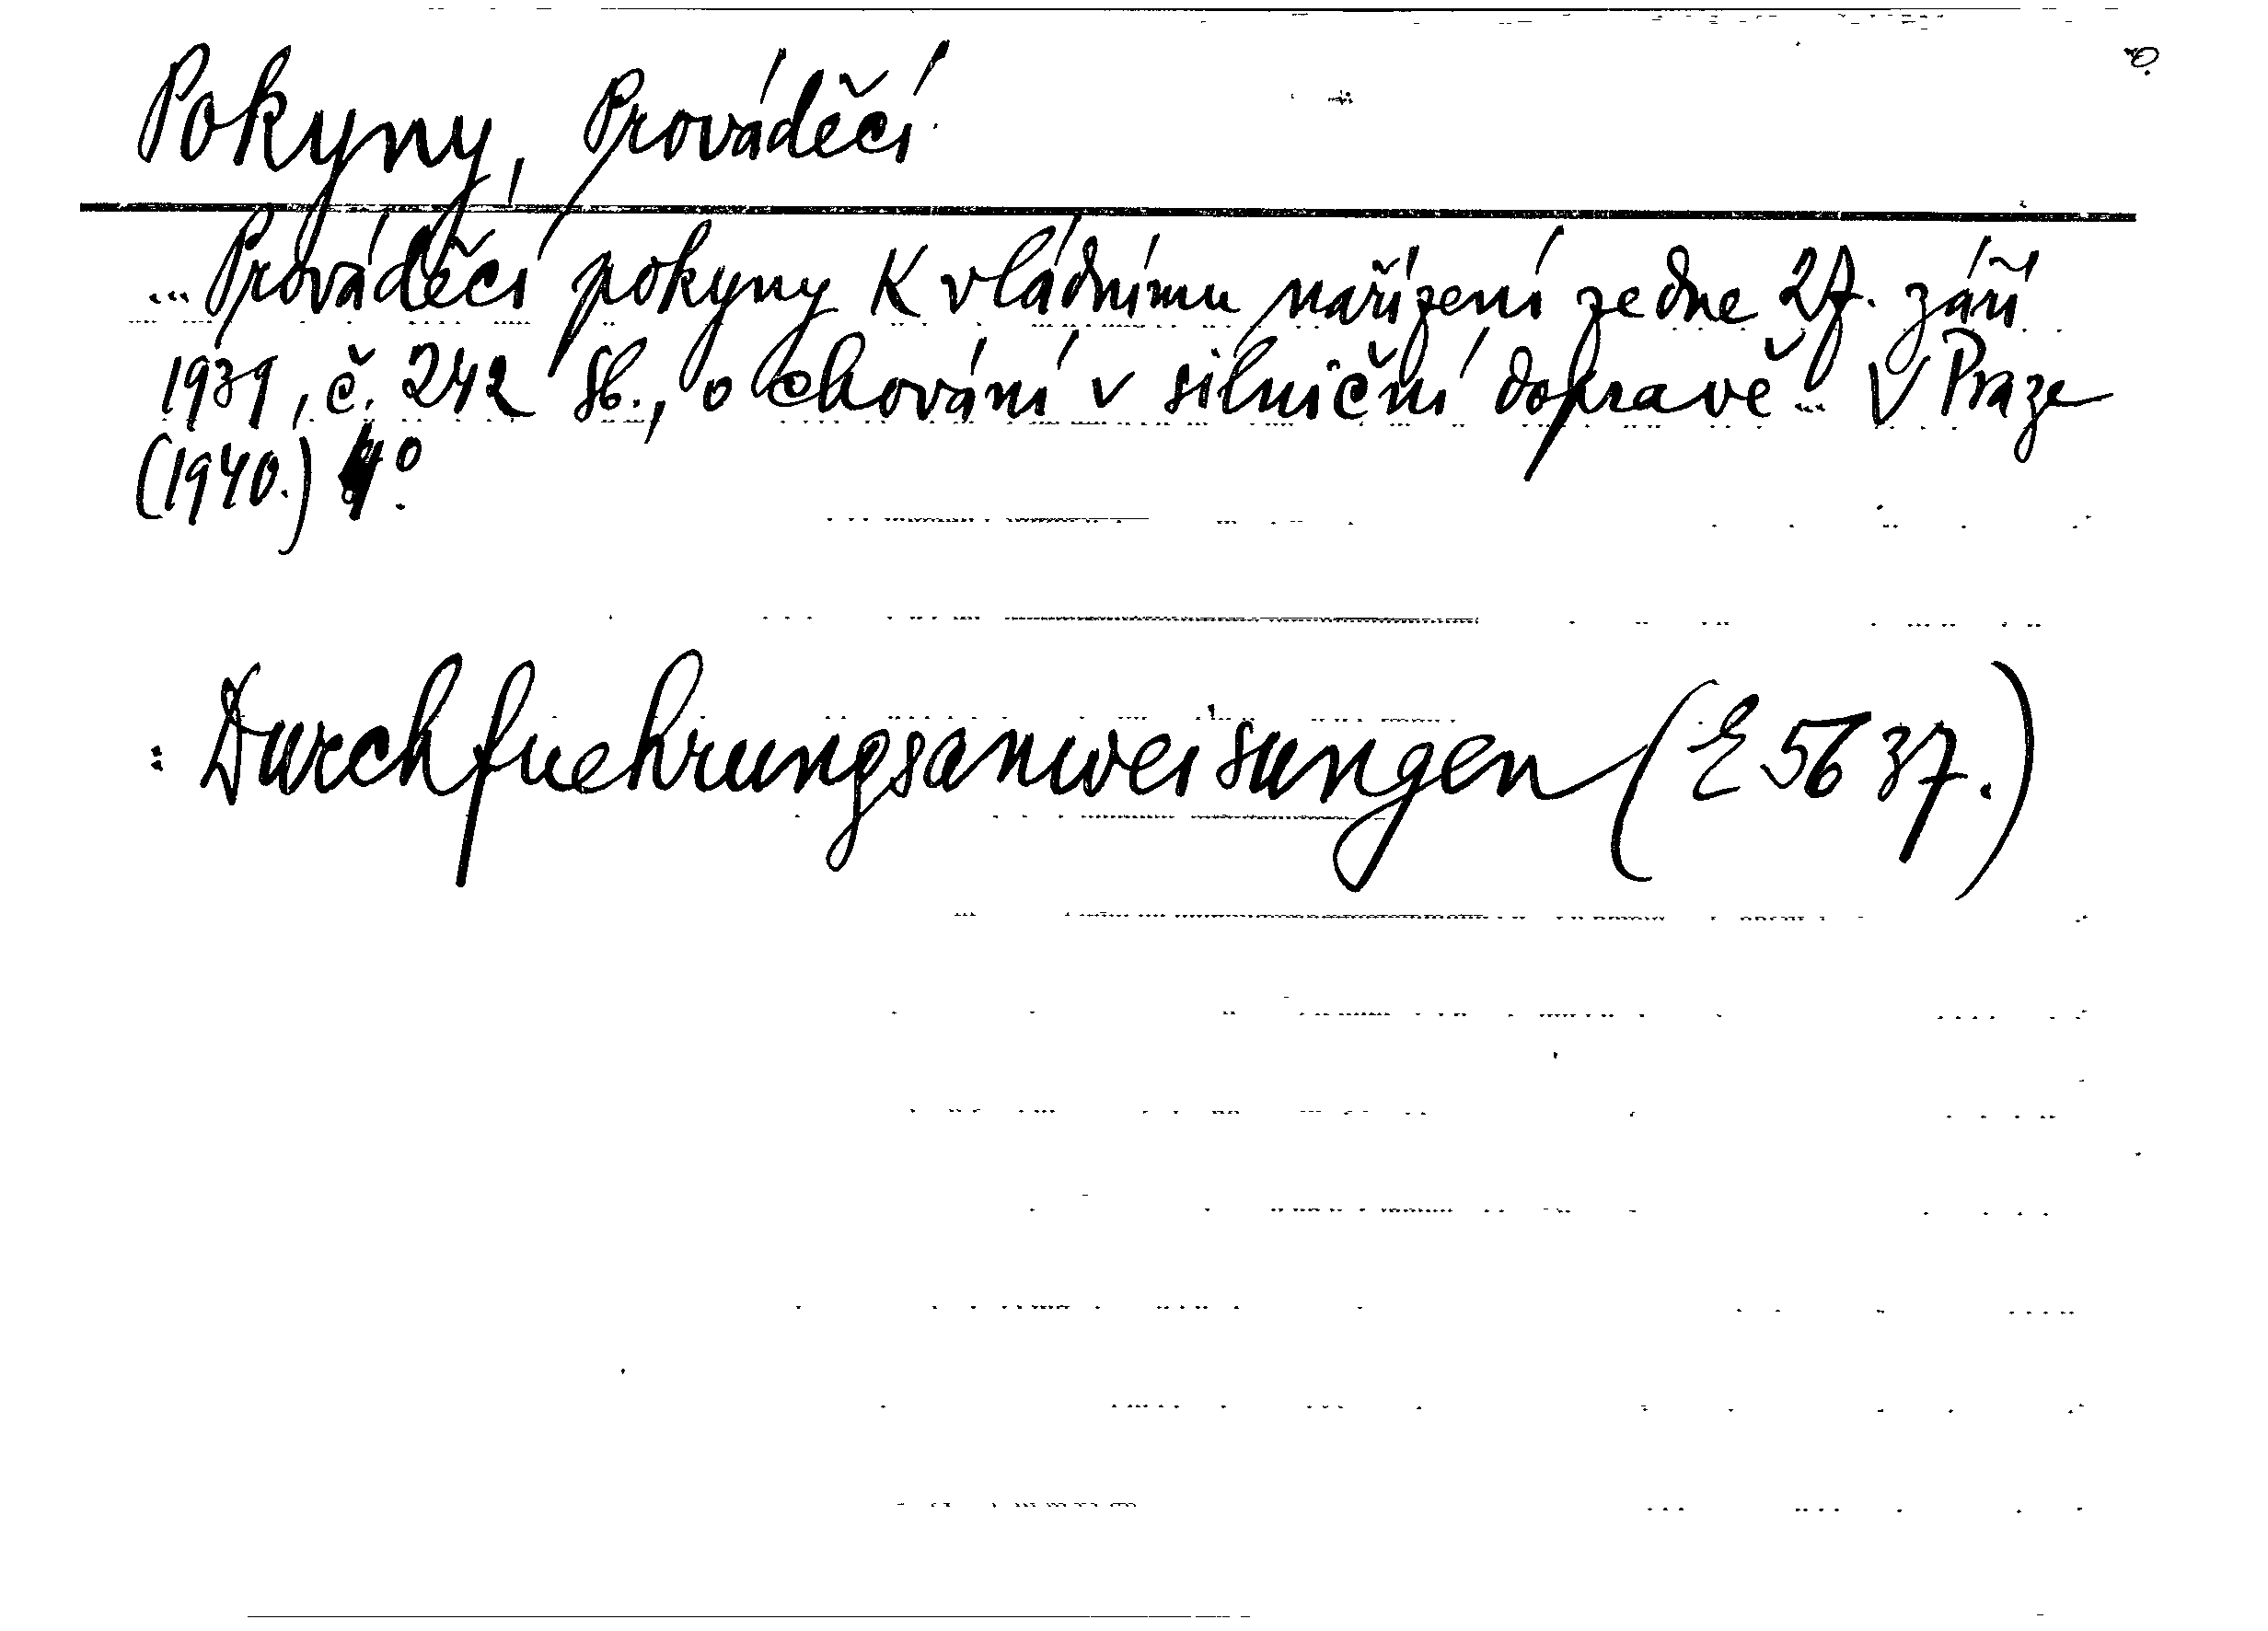 Pokyny, Prováděcí
...Prováděcí pokyny k vládnímu nařízení ze dne 27. září
1939, č. 242 Sb., o chování v silniční dopravě... V Praze
(1940.) 4°.
: Durchfuehrungsanweisungen (E 5637.)